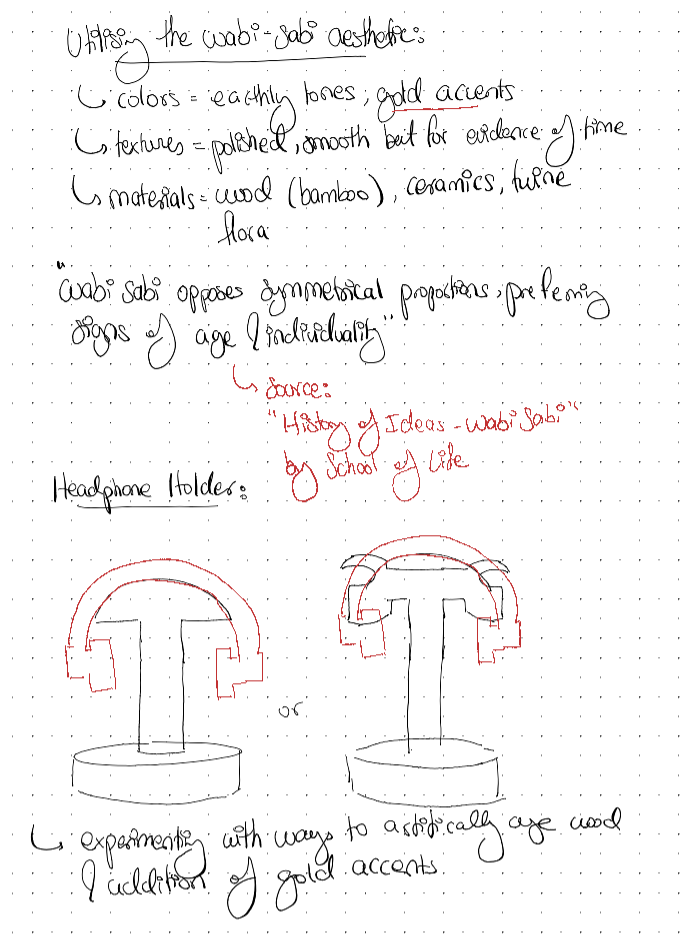 Utilising the wabi-sabi aesthetic:
↳ colors = earthly tones, gold accents
↳ textures = polished, smooth but for evidence of time
↳ materials = wood (bamboo), ceramics, twine
flora
"Wabi Sabi opposes symmetrical proportions, preferring
signs of age & individuality"
↳ Source:
"History of Ideas - Wabi Sabi"
by School of Life
Headphone Holder:
or
↳ experimenting with ways to artifically age wood
& addition of gold accents